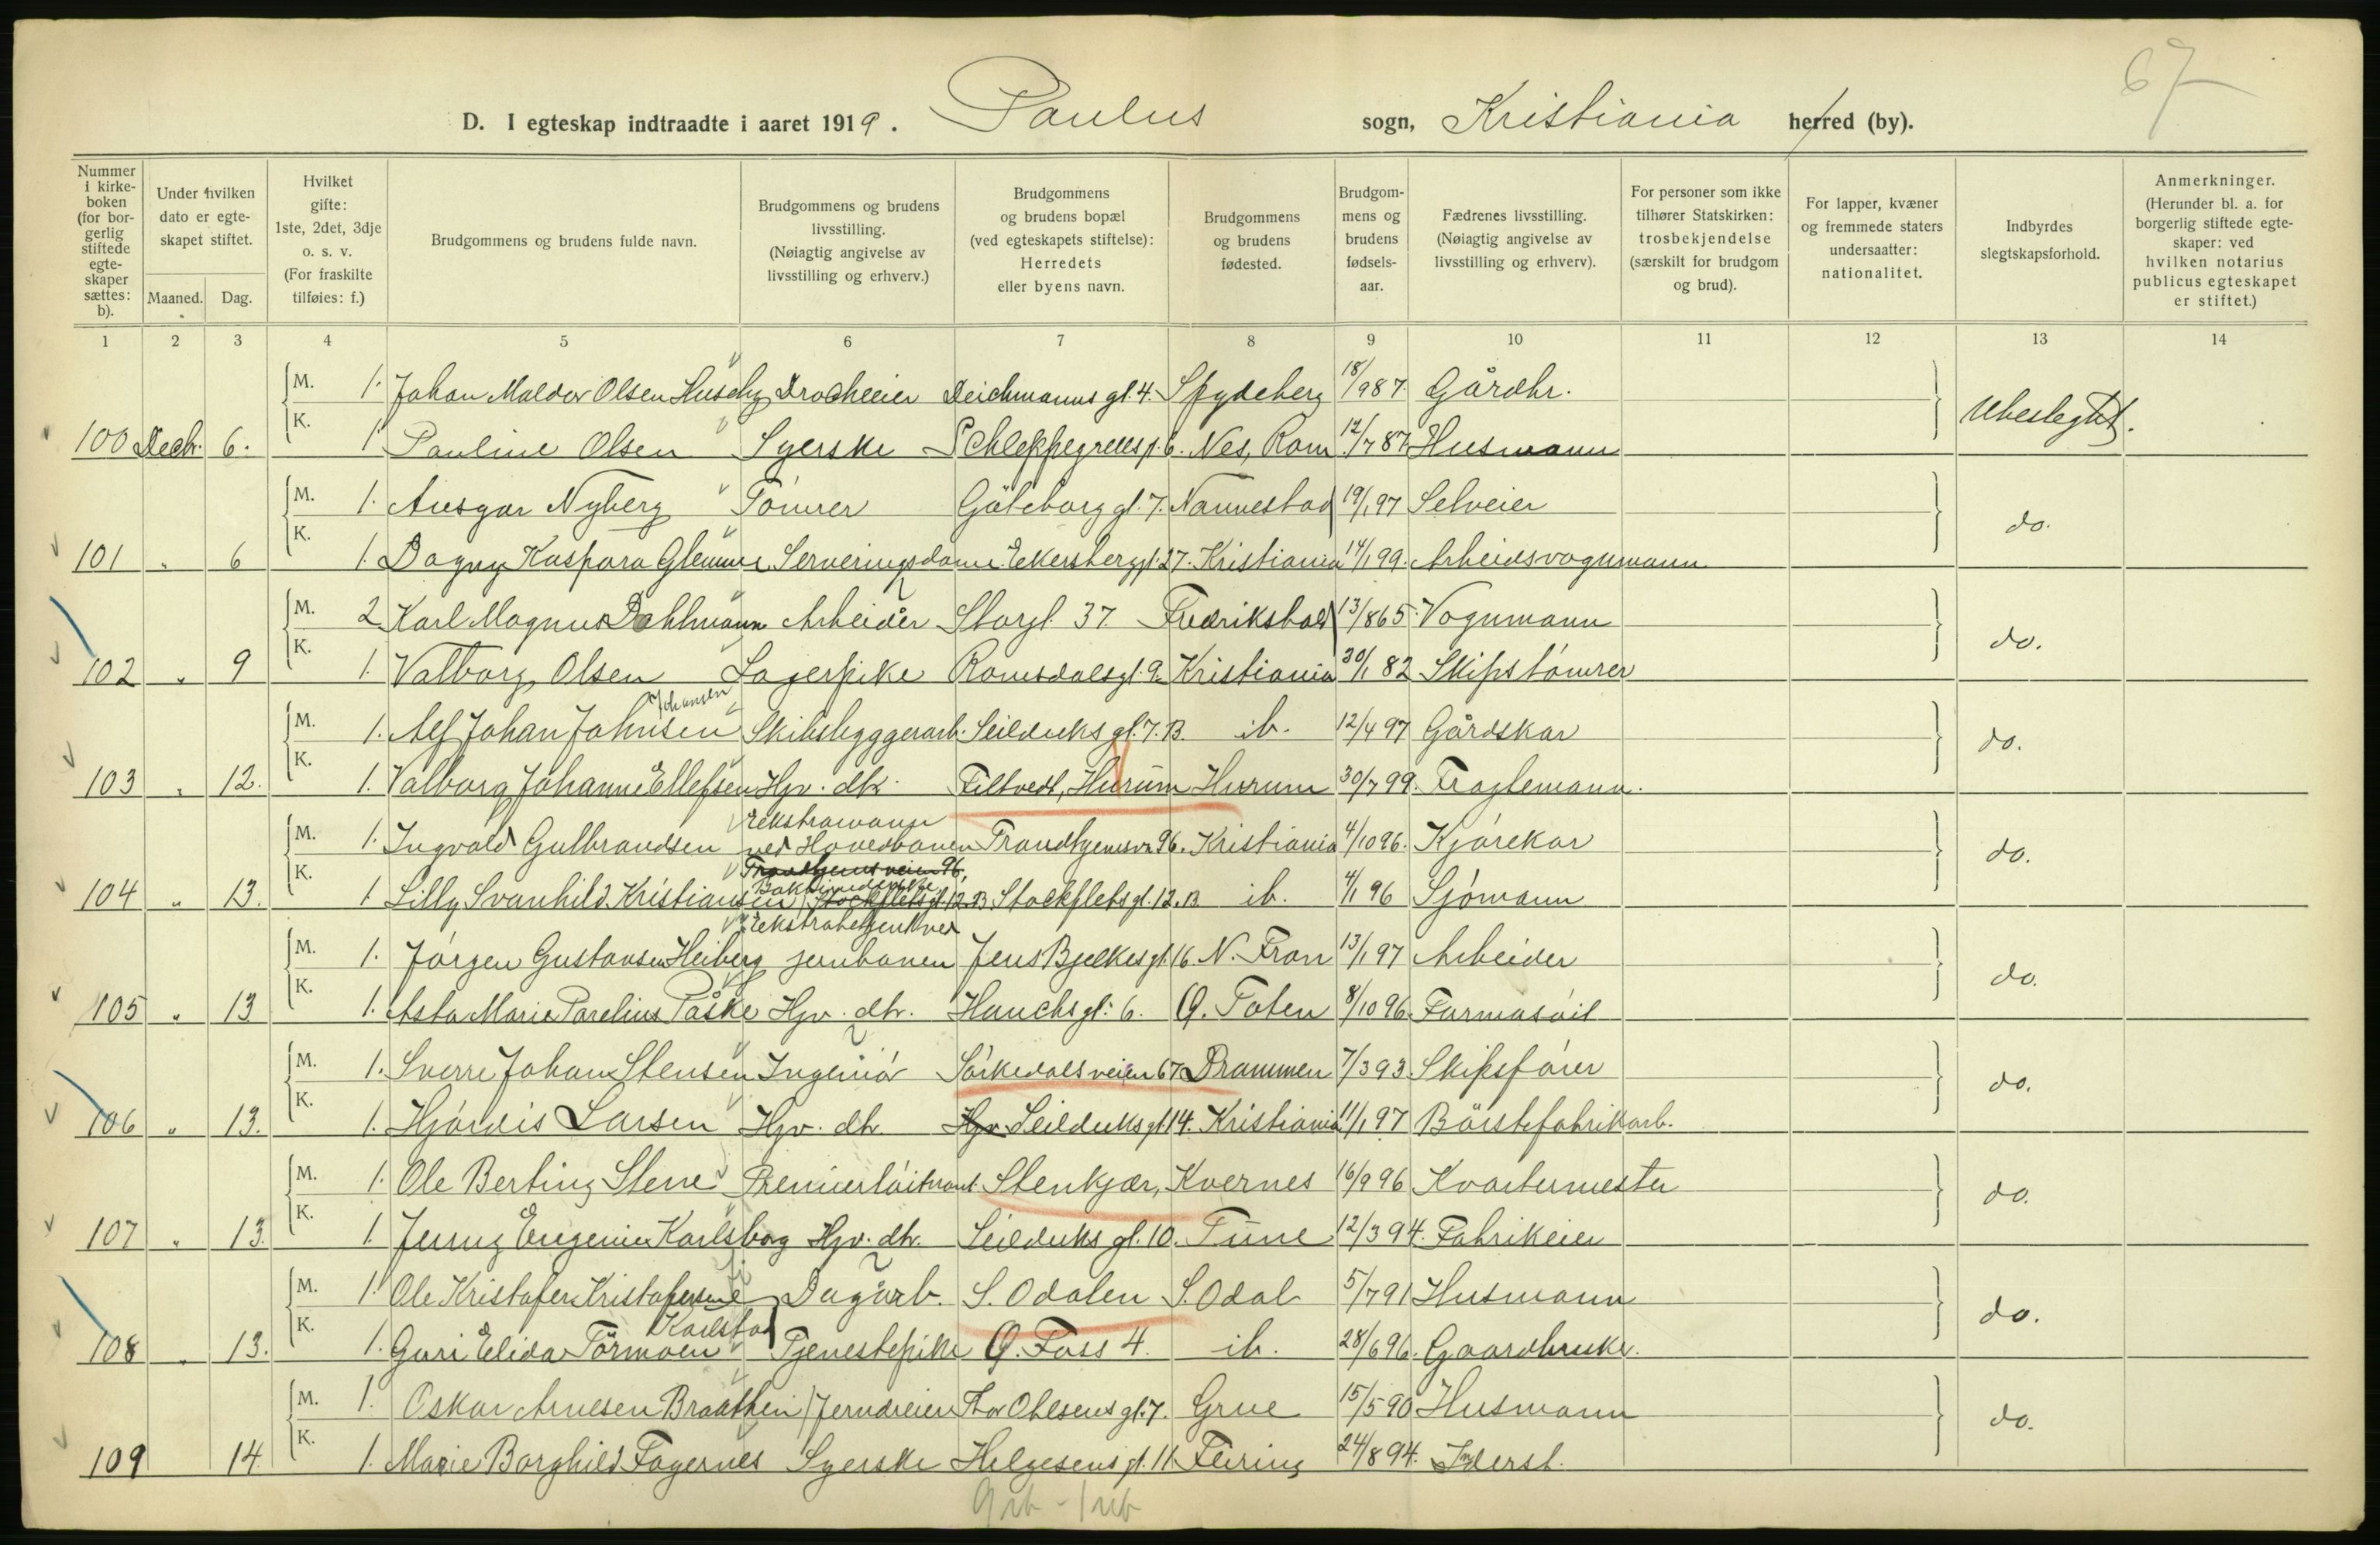 67
D. I egteskap indtraadte i aaret 1919. Paulus sogn, Kristiania herred (by).
Nummer i kirke-boken (for bor-gerlig stiftede egte-skaper sættes: b).
Under hvilken dato er egte-skapet stiftet.
Maaned. Dag.
Hvilket gifte: 1ste, 2det, 3dje o. s. v. (For fraskilte tilføies: f.)
Brudgommens og brudens fulde navn.
Brudgommens og brudens livsstilling. (Nøiagtig angivelse av livsstilling og erhverv.)
Brudgommens og brudens bopæl (ved egteskapets stiftelse): Herredets eller byens navn.
Brudgommens og brudens fødested.
Brudgom-mens og brudens fødsels-aar.
Fædrenes livsstilling. (Nøiagtig angivelse av livsstilling og erhverv).
For personer som ikke tilhører Statskirken: trosbekjendelse (særskilt for brudgom og brud).
For lapper, kvæner og fremmede staters undersaatter: nationalitet.
Indbyrdes slegtskapsforhold.
Anmerkninger. (Herunder bl. a. for borgerlig stiftede egte-skaper: ved hvilken notarius publicus egteskapet er stiftet.)
1 2 3 4 5 6 7 8 9 10 11 12 13 14
M. 1. Johan Maldor Olsen Huseby Drocheeier Deichmanns gt. 4. Spydeberg 18/9 87. Gårdbr.
100 Decbr. 6. K. 1 Pauline Olsen Syerske Schleppegrellsg. 6. Nes, Rom 12/7 87. Husmann Ubeslegtet.
M. 1. Ansgar Nyberg Tömrer Göteborg gt. 7. Nannestad 19/1 97 Selveier
101 " 6 K. 1. Dagny Kaspara Glemme Serveringsdame Eckersbergg. 27. Kristiania 14/1 99. Arbeidsvognmann do.
M. 2 Karl Magnus Dahlmann Arbeider Storgt. 37. Fredrikstad 13/8 65. Vognmann
102 " 9 K. 1. Valborg Olsen Lagerpike Romsdalsgt. 9. Kristiania 30/1 82 Skipstömrer do.
Johansen
M. 1. Alf Johan Johnsen Skibsbyggerarb. Seilduks gt. 7. B. ib. 12/4 97 Gårdskar
103 " 12. K. 1. Valborg Johanne Ellefsen Hjv. dtr. Filtvedt, Hurum Hurum 30/7 99. Fragtemann. do.
Ekstramann
M. 1. Ingvald Gulbrandsen ved Hovedbanen Trondhjemsvn 96. Kristiania 4/10 96. Kjörekar
Trondhjemsveien 96,
104 " 13. K. 1 Lilly Svanhild Kristiansen Stockfletsgt. 12 B. Stockfletsgt. 12. B ib. 4/1 96 Sjömann do.
Ekstrabetjent ved
M. 1. Jörgen Gustavsen Heiberg jernbanen Jens Bjelkes gt. 16. N. Fron 13/1 97 Arbeider
105 " 13 K. 1. Asta Marie Parelius Påske Hjv. dtr. Hauchs gt. 6. Ø. Toten 8/10 96. Furmasöil do.
M. 1. Sverre Johan Stensen Ingeniör Sörkedalsveien 67. Drammen 7/3 93. Skipsförer
106 " 13. K. 1. Hjördis Larsen Hjv. dtr. Hjv. Seilduksgt 14. Kristiania 11/1 97 Börstefabrikarb. do.
M. 1. Ole Berting Stene Premierlöitnant Stenkjær, Kvernes 16/9 96 Kvartermester
107 " 13. K. 1. Jenny Eugenie Karlsborg Hjv. dtr. Seilduks gt. 10. Tune 12/3 94. Fabrikeier do.
M. 1. Ole Kristofer Kristofersen Dagarb. S. Odalen S. Odal 5/7 91 Husmann
Karlstad
108 " 13. K. 1. Guri Elida Törmoen Tjenestepike Ø. Foss 4. ib. 28/6 96. Gaardbruker. do.
M. 1. Oskar Arnesen Braathen Jerndreier Thor Olsens gt. 7. Grue 15/5 90 Husmann
109 14 K. 1. Marie Borghild Fagernes Syerske Helgesens gt. 11. Feiring 24/8 94. Inderst. do.